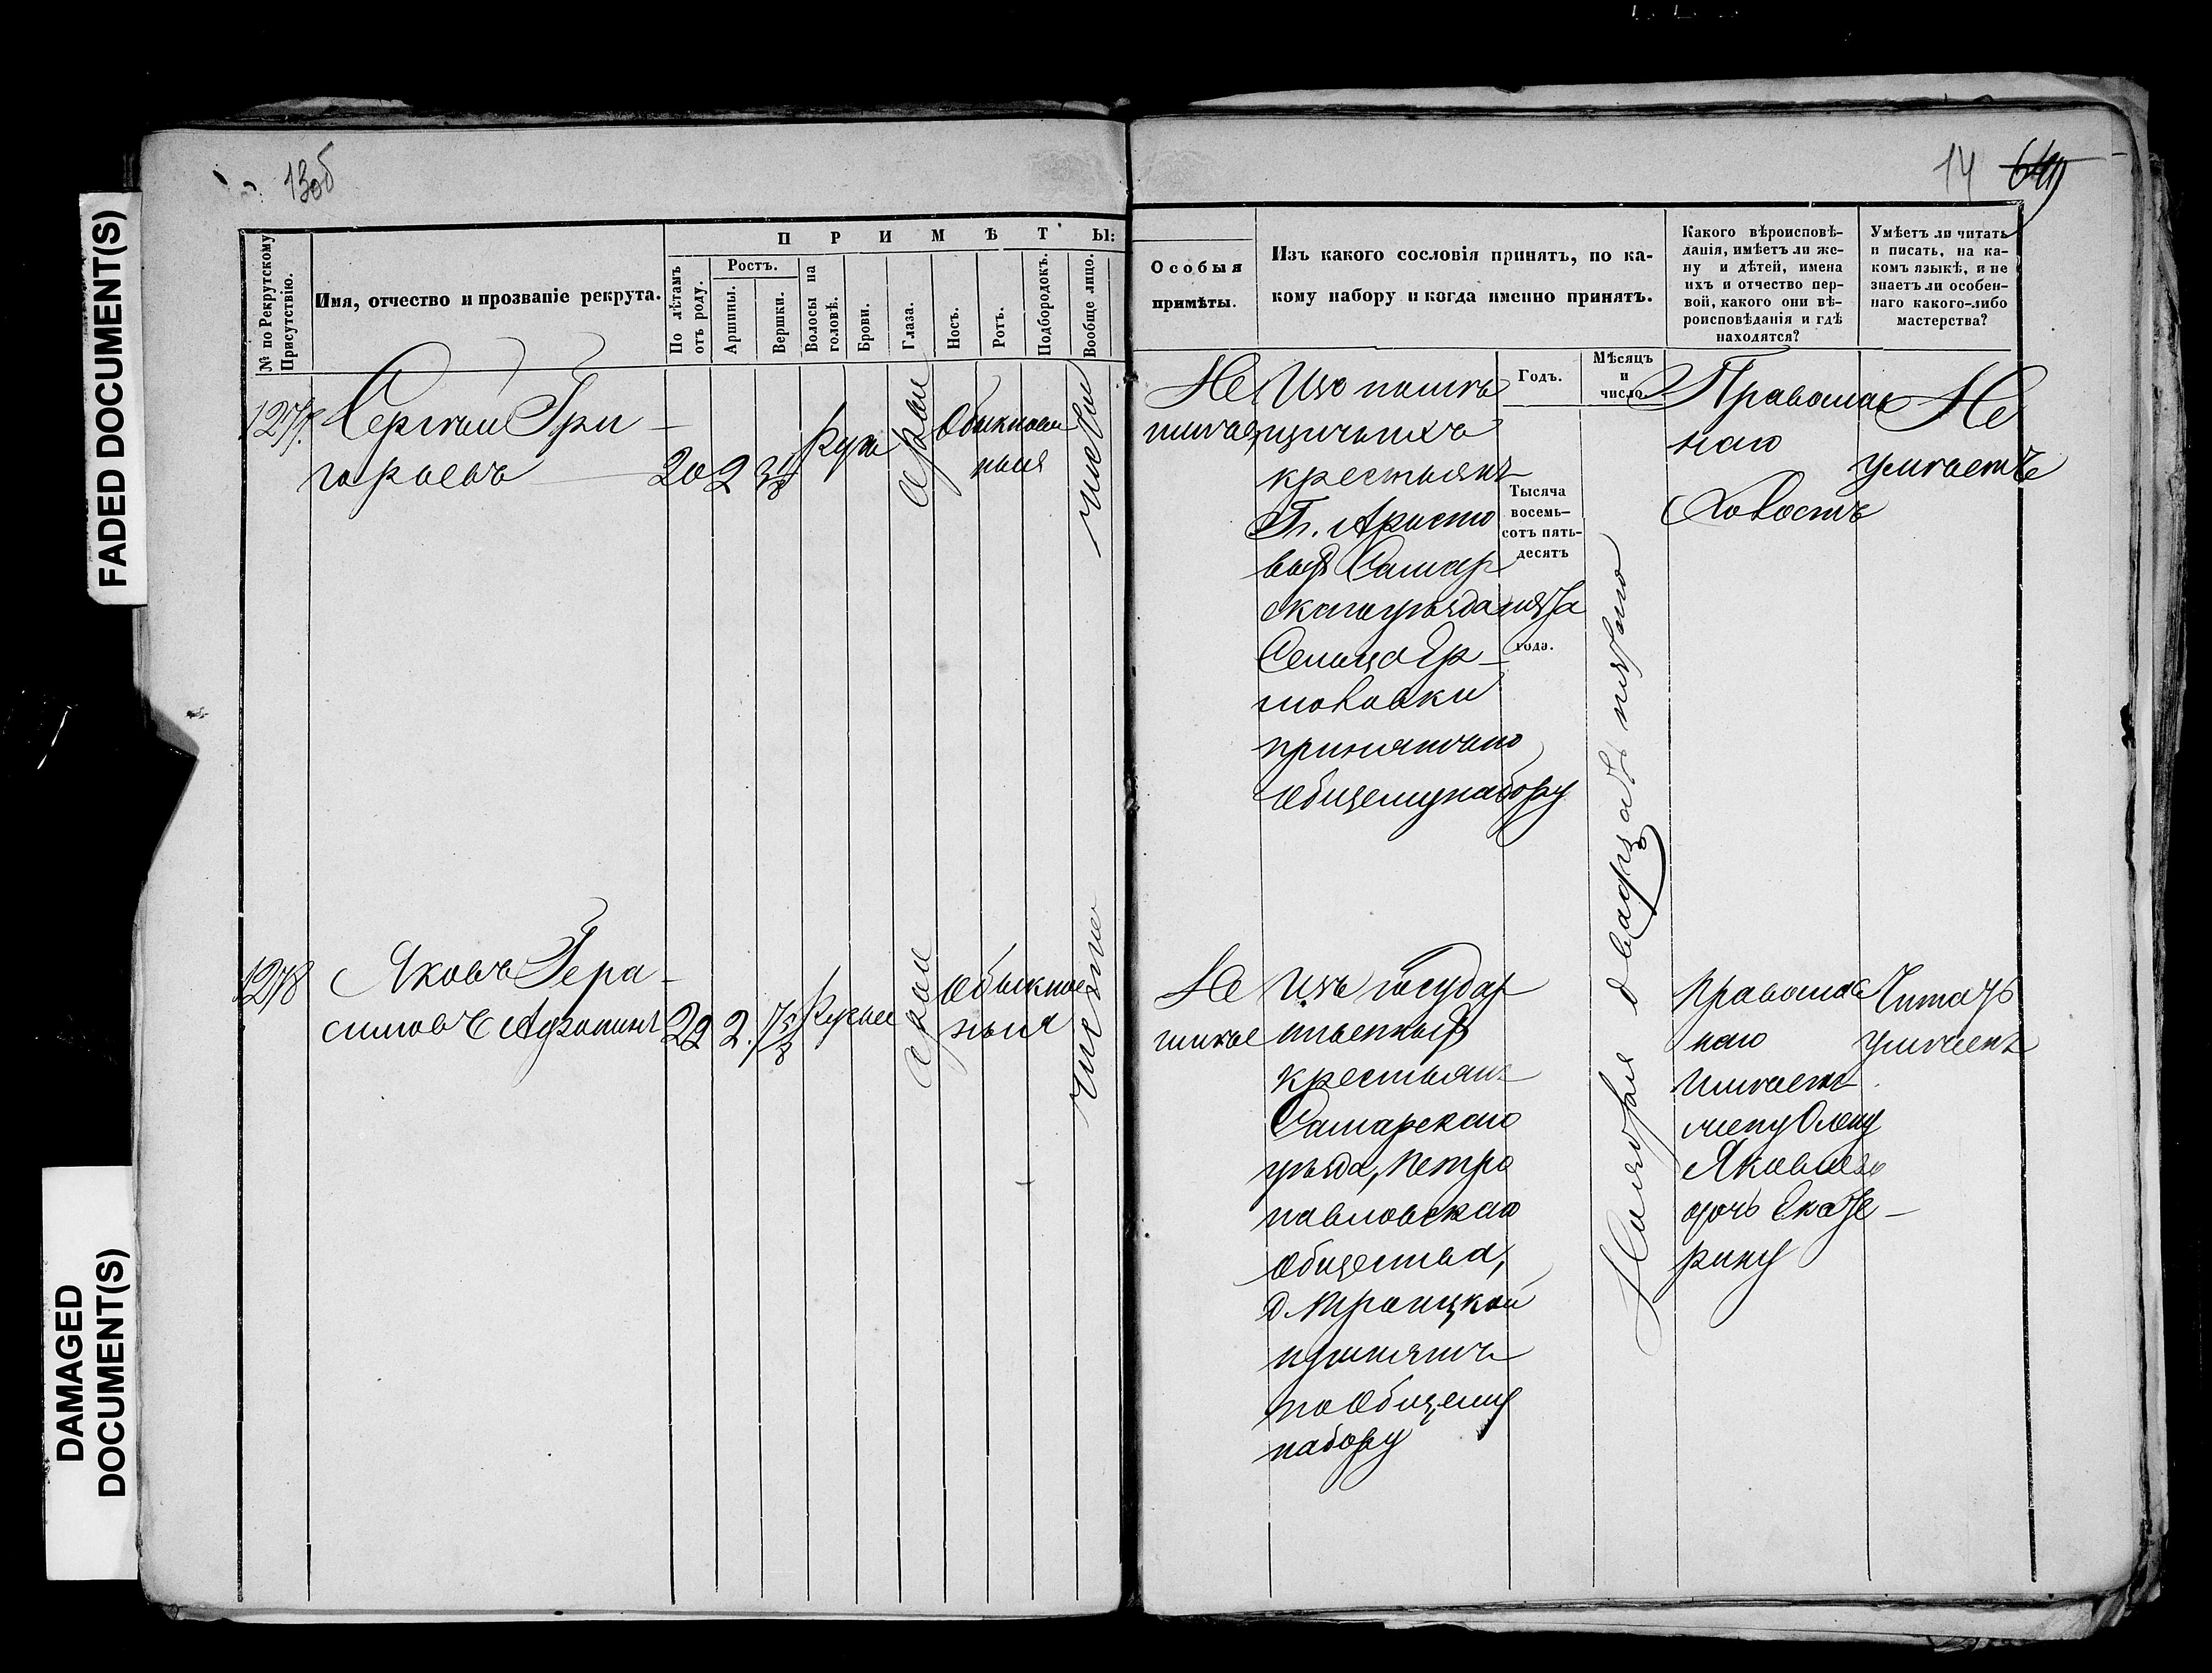 FADED DOCUMENT(S)
DAMAGED
DOCUMENT(S)
13об
14
П Р И М Ѣ Т Ы:
№ по Рекрутскому
Присутствію.
Имя, отчество и прозваніе рекрута.
По лѣтамъ
отъ роду.
Ростъ.
Аршины.
Вершки.
Волосы на
головѣ.
Брови.
Глаза.
Носъ.
Ротъ.
Подбородокъ.
Вообще лицо.
Особыя
примѣты.
Изъ какого сословія принятъ, по ка-
кому набору и когда именно принятъ.
Годъ.
Мѣсяцъ
и
число.
Какого вѣроисповѣ-
данія, имѣетъ ли же-
ну и дѣтей, имена
ихъ и отчество пер-
вой, какого они вѣ-
роисповѣданія и гдѣ
находятся?
Умѣетъ ли читать
и писать, на ка-
комъ языкѣ, и не
знаетъ ли особен-
наго какого-либо
мастерства?
1277.
Сергѣй Гри-
горьевъ
20
2
Русы
Сѣрыя
Обыкновен
ныя
чистый
Не
имѣе
Изъ помѣ
щичьихъ
крестьянъ
Гг. Аристо
выхъ Самар
скагоуѣзда
Сельца Ер-
моловки
принятъпо
Общемунабору
Тысяча
восемь-
сотъ пять-
десятъ
пята
года.
Ноября двадцать пятаго
Православ
наго
Холостъ
Не
умѣетъ
1278
Яковъ Гера-
симовъ
22
2.
7 5/8
Русые
Сѣрыя
Обыкнове
ныя
чистое
Не
имѣе
Изъ государ
ственныхъ
крестьянъ
Самарскаго
уѣзда, Петро
павловскаго
Общества,
д. Троицкой
принятъ
по Общему
набору
Православ
наго
Имѣетъ
жену Олену
Яковлеву
дочь Екате-
рину
Читать
умѣетъ